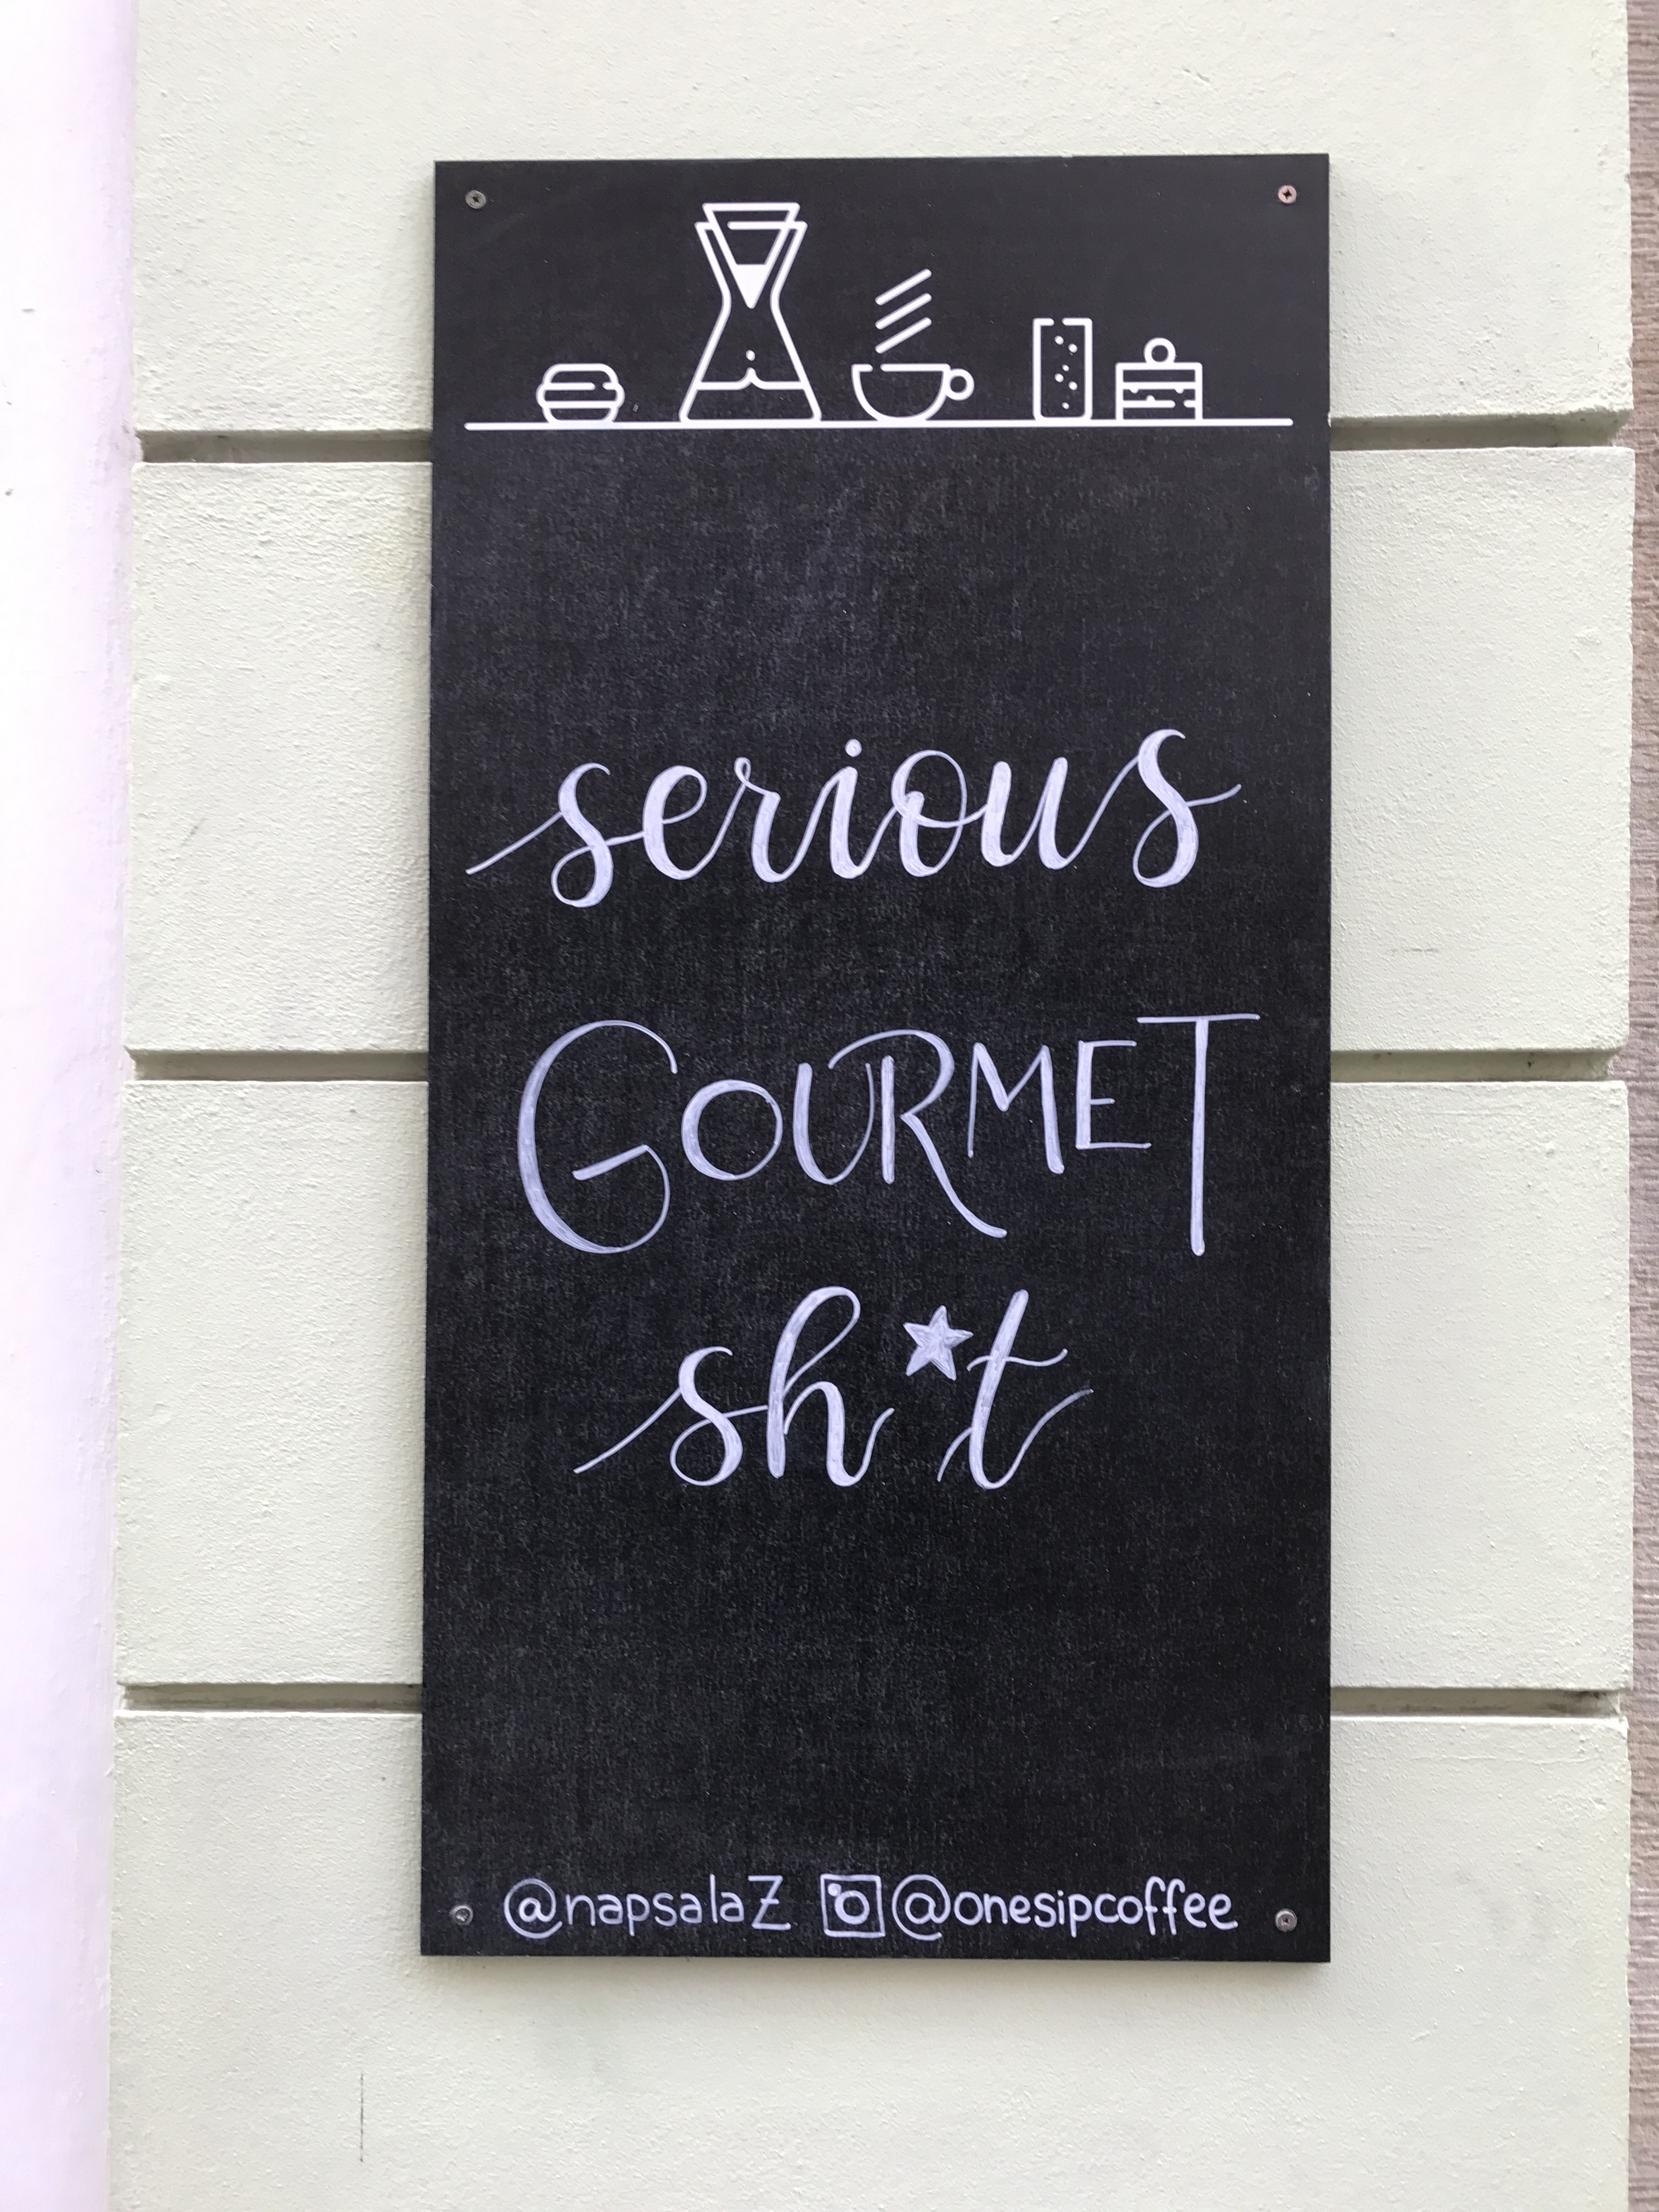 serious
GOURMET
sh*t
@napsalaZ @onesipcoffee